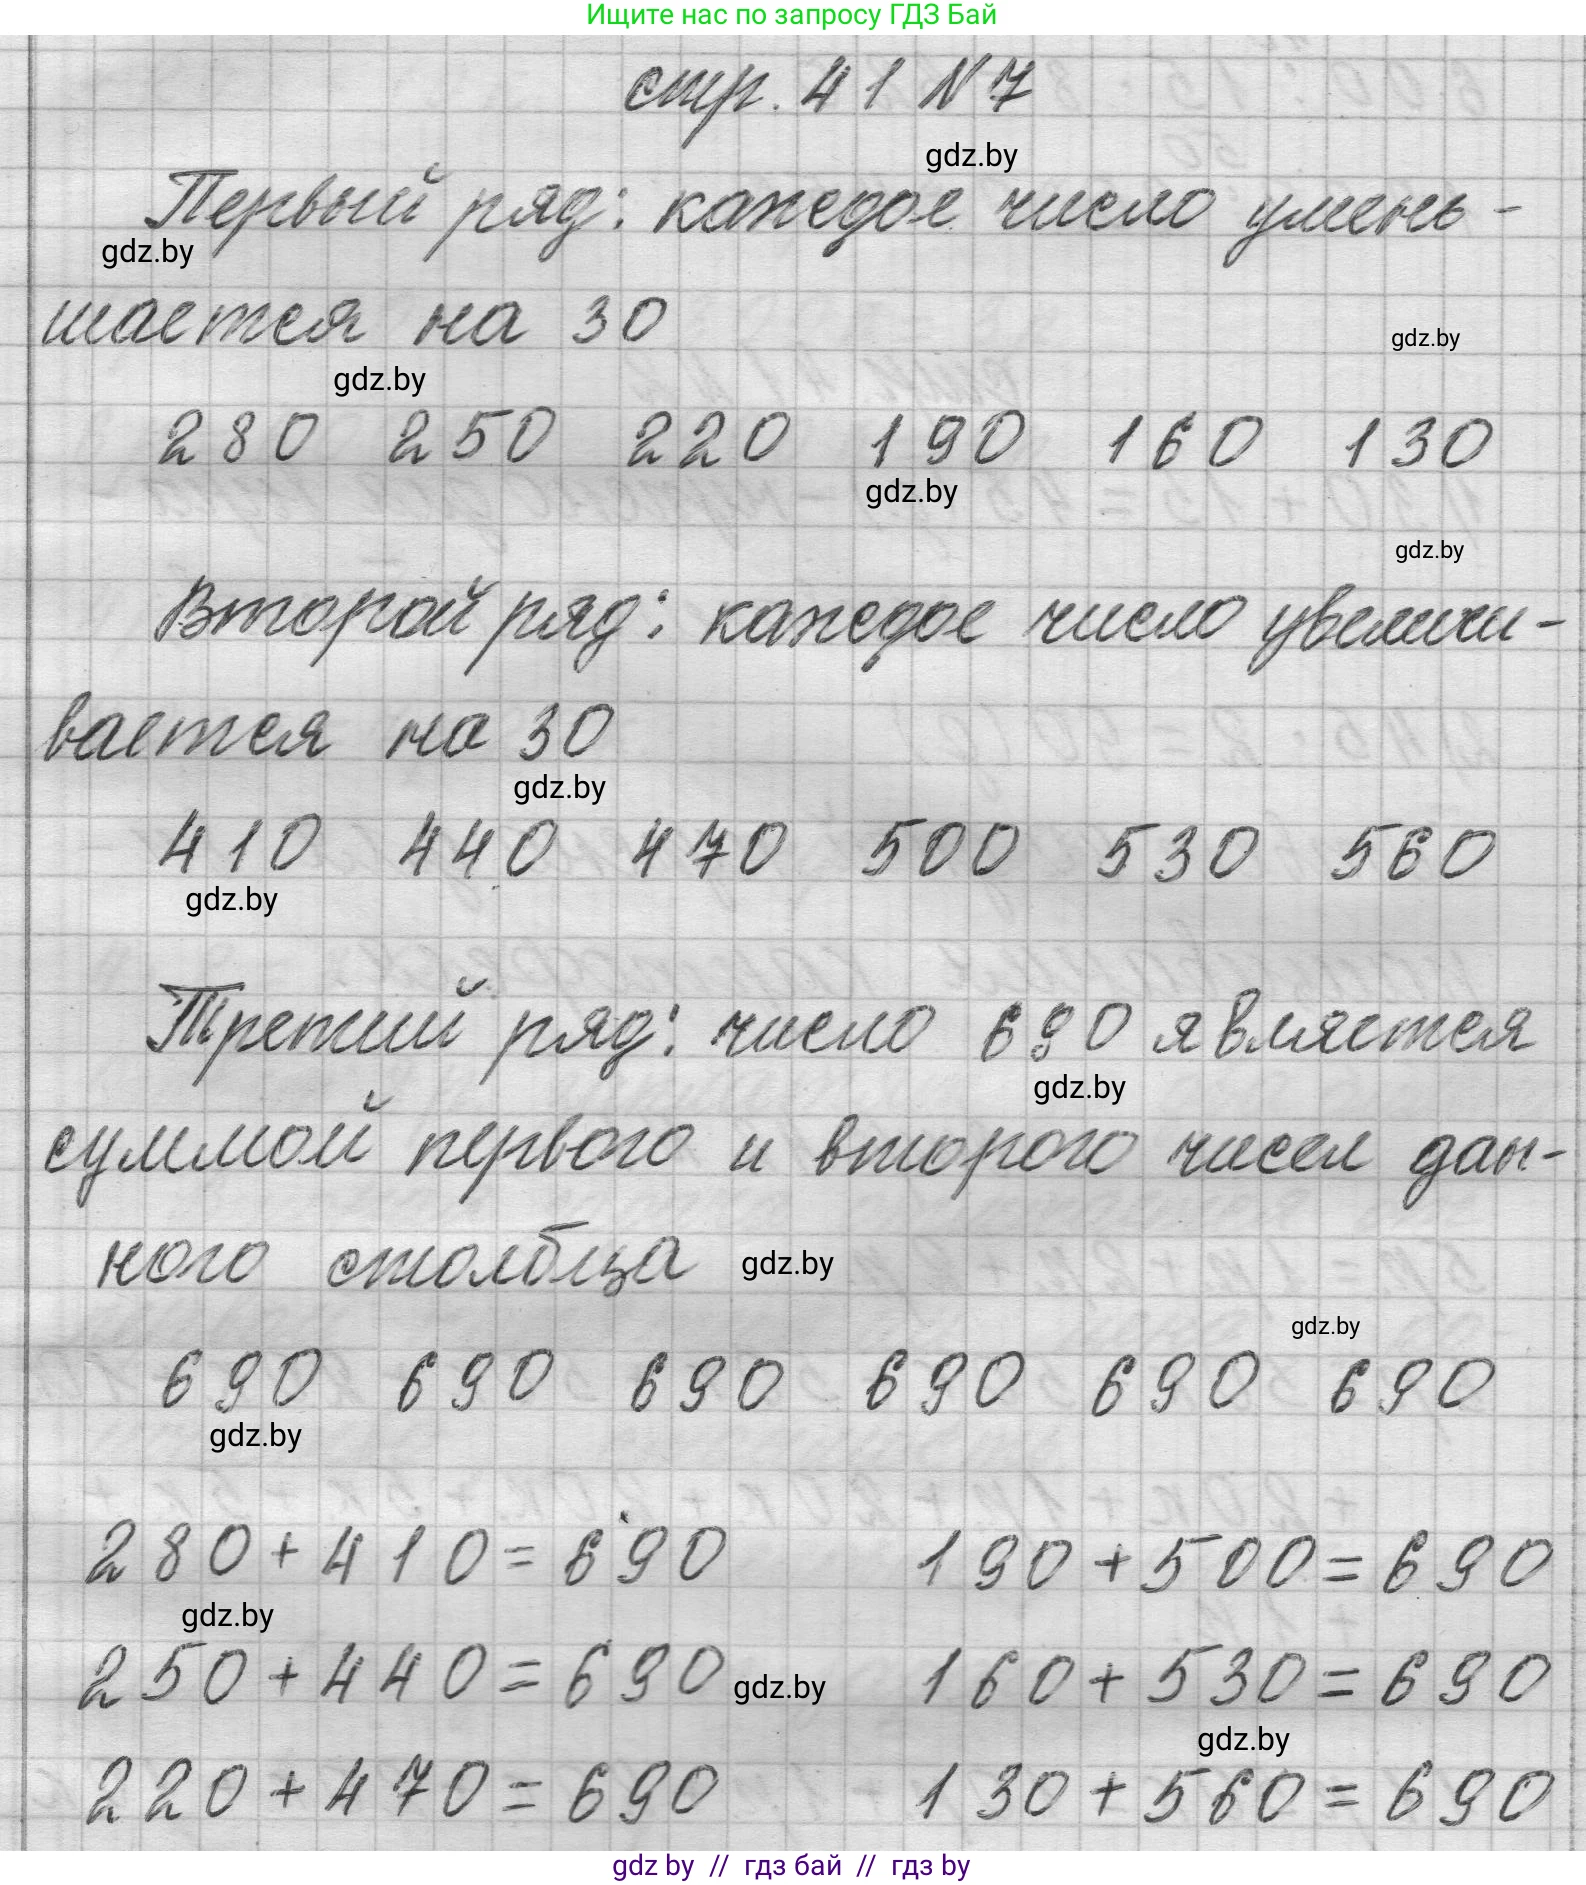 Ищите нас по запросу ГДЗ Бай
стр. 41 №7
gdz.by
Первый ряд: каждое число умень-
gdz.by
шается на 30
gdz.by
gdz.by
280 250 220 190 160 130
gdz.by
gdz.by
Второй ряд: каждое число увеличи-
вается на 30
gdz.by
410 440 470 500 530 560
gdz.by
Третий ряд: число 690 является
gdz.by
суммой первого и второго чисел дан-
ного столбца gdz.by
gdz.by
690 690 690 690 690 690
gdz.by
280+410=690 190+500=690
gdz.by
250+440=690 gdz.by 160+530=690
gdz.by
220+470=690 130+560=690
gdz by // гдз бай // гдз by